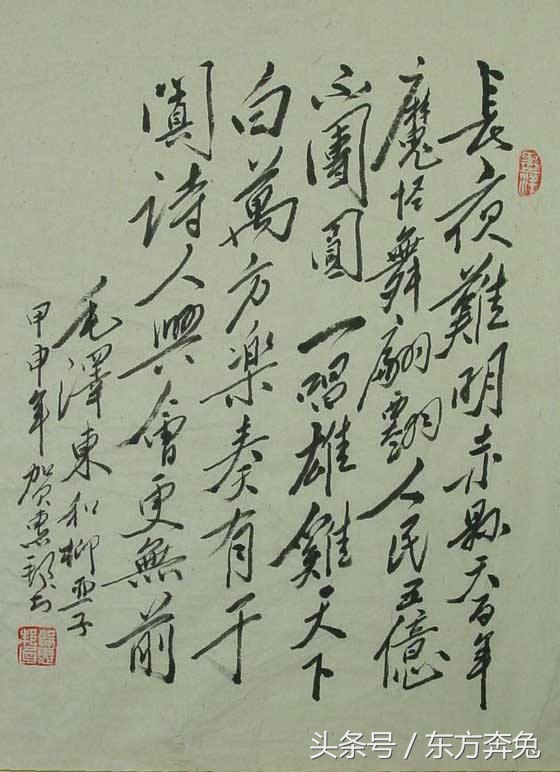 長夜難明赤縣天百年
魔怪舞翩人民五億
不團圓一唱雄雞天下
白萬方樂奏有于
闐詩人興會更無前
毛澤東和柳亞子
甲申年賀惠邦书
头条号 / 东方奔兔